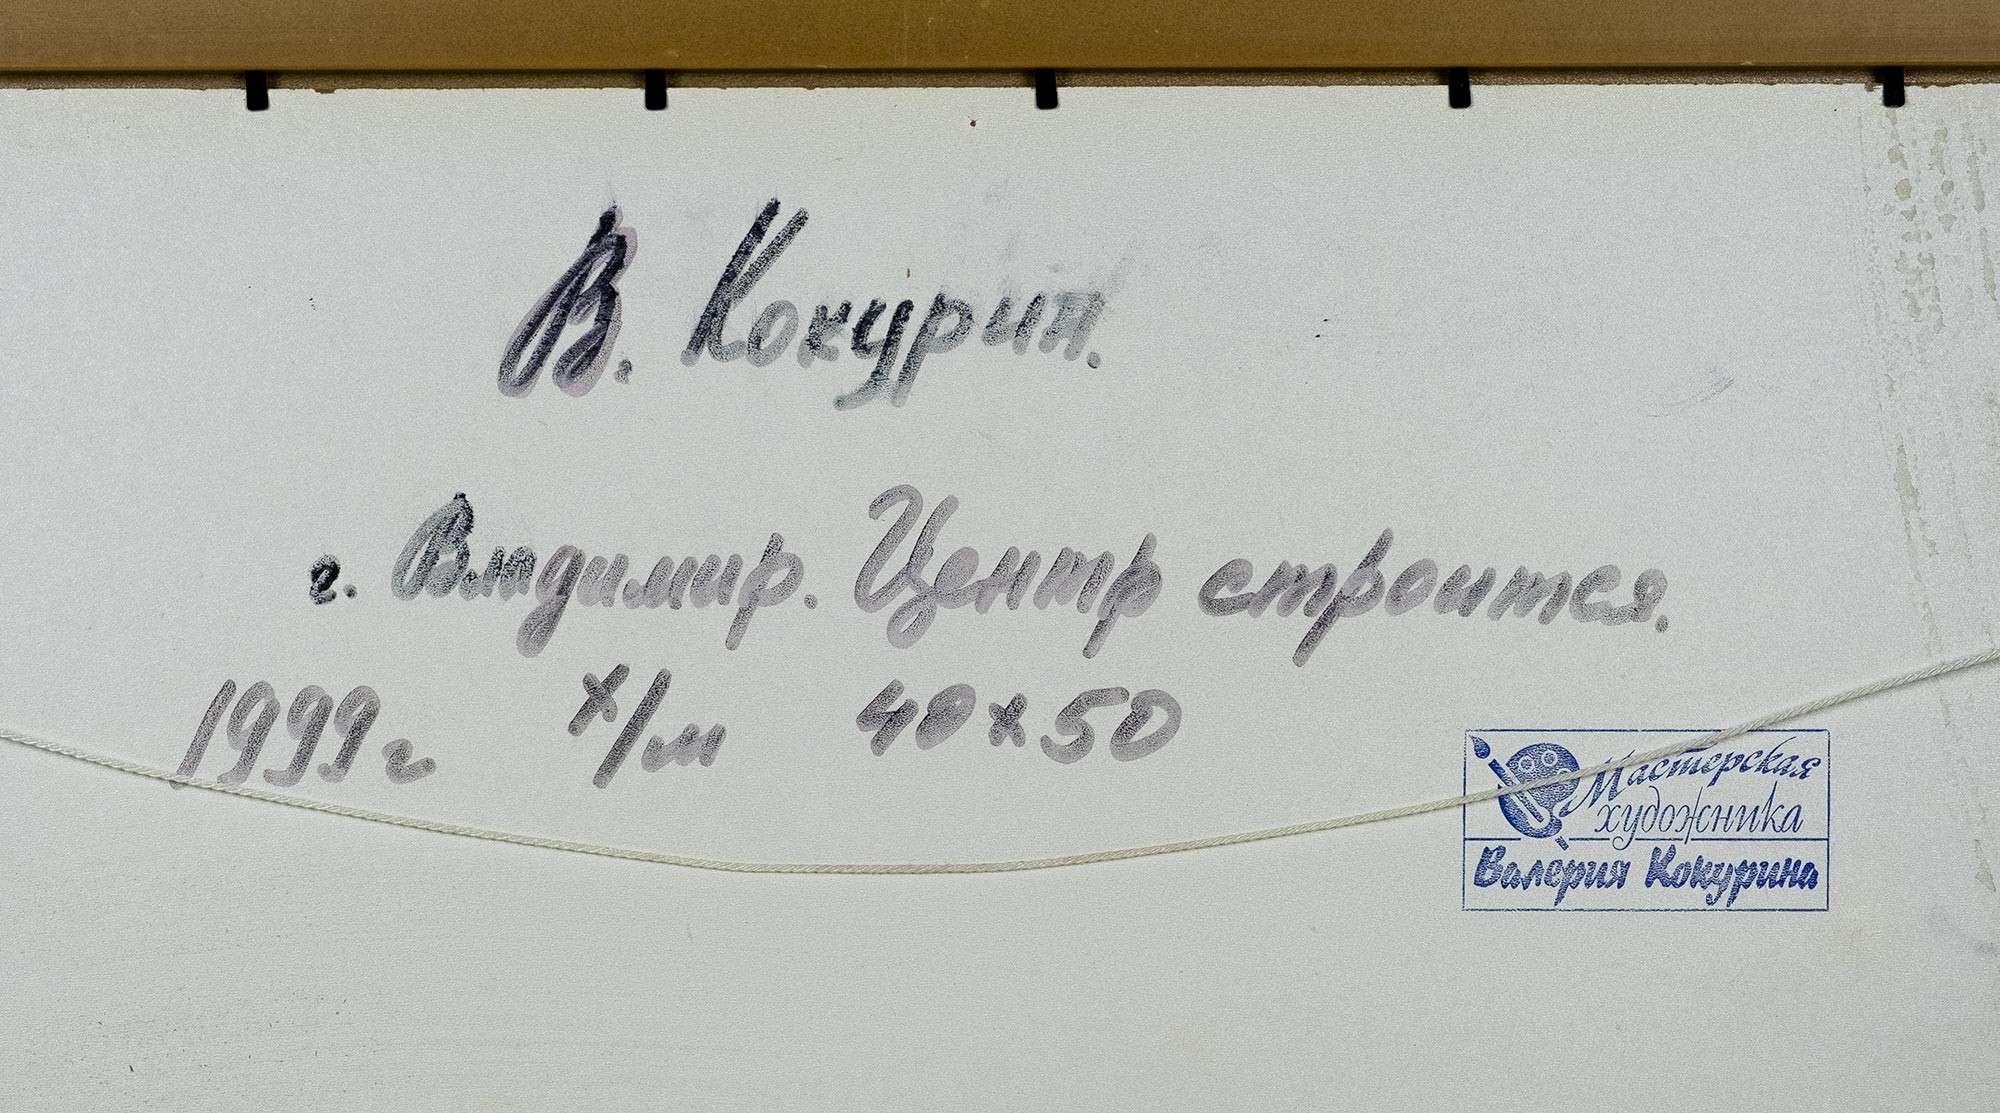 В. Кокурин.
г. Владимир. Центр строится.
1999г х/м 40х50
Мастерская
художника
Валерия Кокурина